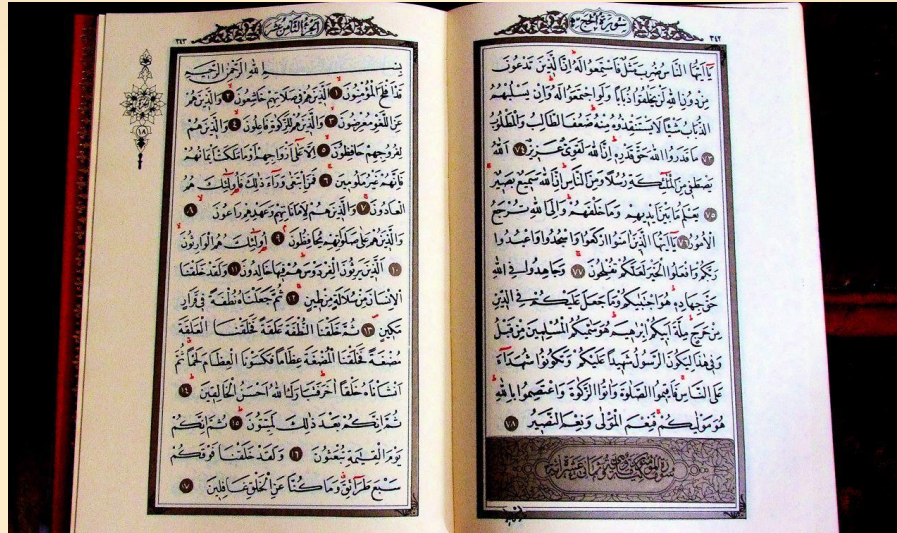 سُورَةُ الْحَجِّ
٣٤٢
يَاأَيُّهَا النَّاسُ ضُرِبَ مَثَلٌ فَاسْتَمِعُوا لَهُ إِنَّ الَّذِينَ تَدْعُونَ
مِنْ دُونِ اللهِ لَنْ يَخْلُقُوا ذُبَابًا وَلَوِ اجْتَمَعُوا لَهُ وَإِنْ يَسْلُبْهُمُ
الذُّبَابُ شَيْئًا لَا يَسْتَنْقِذُوهُ مِنْهُ ضَعُفَ الطَّالِبُ وَالْمَطْلُوبُ
٧٣ مَا قَدَرُوا اللهَ حَقَّ قَدْرِهِ إِنَّ اللهَ لَقَوِىٌّ عَزِيزٌ ٧٤ اَللهُ
يَصْطَفِى مِنَ الْمَلٰئِكَةِ رُسُلًا وَمِنَ النَّاسِ إِنَّ اللهَ سَمِيعٌ بَصِيرٌ
٧٥ يَعْلَمُ مَا بَيْنَ أَيْدِيهِمْ وَمَا خَلْفَهُمْ وَإِلَى اللهِ تُرْجَعُ
الْأُمُورُ ٧٦ يَاأَيُّهَا الَّذِينَ آمَنُوا ارْكَعُوا وَاسْجُدُوا وَاعْبُدُوا
رَبَّكُمْ وَافْعَلُوا الْخَيْرَ لَعَلَّكُمْ تُفْلِحُونَ ٧٧ وَجَاهِدُوا فِى اللهِ
حَقَّ جِهَادِهِ هُوَ اجْتَبٰيكُمْ وَمَا جَعَلَ عَلَيْكُمْ فِى الدِّينِ
مِنْ حَرَجٍ مِلَّةَ أَبِيكُمْ إِبْرٰهِيمَ هُوَ سَمّٰيكُمُ الْمُسْلِمِينَ مِنْ قَبْلُ
وَفِى هٰذَا لِيَكُونَ الرَّسُولُ شَهِيدًا عَلَيْكُمْ وَتَكُونُوا شُهَدَاءَ
عَلَى النَّاسِ فَأَقِيمُوا الصَّلٰوةَ وَآتُوا الزَّكٰوةَ وَاعْتَصِمُوا بِاللهِ
هُوَ مَوْلٰيكُمْ فَنِعْمَ الْمَوْلٰى وَنِعْمَ النَّصِيرُ ٧٨
اَلْجُزْءُ الثَّامِنَ عَشَرَ
٣٤٣
بِسْمِ اللهِ الرَّحْمٰنِ الرَّحِيمِ
قَدْ أَفْلَحَ الْمُؤْمِنُونَ ١ اَلَّذِينَ هُمْ فِى صَلَاتِهِمْ خَاشِعُونَ ٢ وَالَّذِينَ هُمْ
عَنِ اللَّغْوِ مُعْرِضُونَ ٣ وَالَّذِينَ هُمْ لِلزَّكٰوةِ فَاعِلُونَ ٤ وَالَّذِينَ هُمْ
لِفُرُوجِهِمْ حَافِظُونَ ٥ إِلَّا عَلٰى أَزْوَاجِهِمْ أَوْ مَا مَلَكَتْ أَيْمَانُهُمْ
فَإِنَّهُمْ غَيْرُ مَلُومِينَ ٦ فَمَنِ ابْتَغٰى وَرَاءَ ذٰلِكَ فَأُولٰئِكَ هُمُ
الْعَادُونَ ٧ وَالَّذِينَ هُمْ لِأَمَانَاتِهِمْ وَعَهْدِهِمْ رَاعُونَ ٨
وَالَّذِينَ هُمْ عَلٰى صَلَوَاتِهِمْ يُحَافِظُونَ ٩ أُولٰئِكَ هُمُ الْوَارِثُونَ
١٠ اَلَّذِينَ يَرِثُونَ الْفِرْدَوْسَ هُمْ فِيهَا خَالِدُونَ ١١ وَلَقَدْ خَلَقْنَا
الْإِنْسَانَ مِنْ سُلَالَةٍ مِنْ طِينٍ ١٢ ثُمَّ جَعَلْنَاهُ نُطْفَةً فِى قَرَارٍ
مَكِينٍ ١٣ ثُمَّ خَلَقْنَا النُّطْفَةَ عَلَقَةً فَخَلَقْنَا الْعَلَقَةَ
مُضْغَةً فَخَلَقْنَا الْمُضْغَةَ عِظَامًا فَكَسَوْنَا الْعِظَامَ لَحْمًا ثُمَّ
أَنْشَأْنَاهُ خَلْقًا آخَرَ فَتَبَارَكَ اللهُ أَحْسَنُ الْخَالِقِينَ ١٤
ثُمَّ إِنَّكُمْ بَعْدَ ذٰلِكَ لَمَيِّتُونَ ١٥ ثُمَّ إِنَّكُمْ
يَوْمَ الْقِيٰمَةِ تُبْعَثُونَ ١٦ وَلَقَدْ خَلَقْنَا فَوْقَكُمْ
سَبْعَ طَرَائِقَ وَمَا كُنَّا عَنِ الْخَلْقِ غَافِلِينَ ١٧
١٨